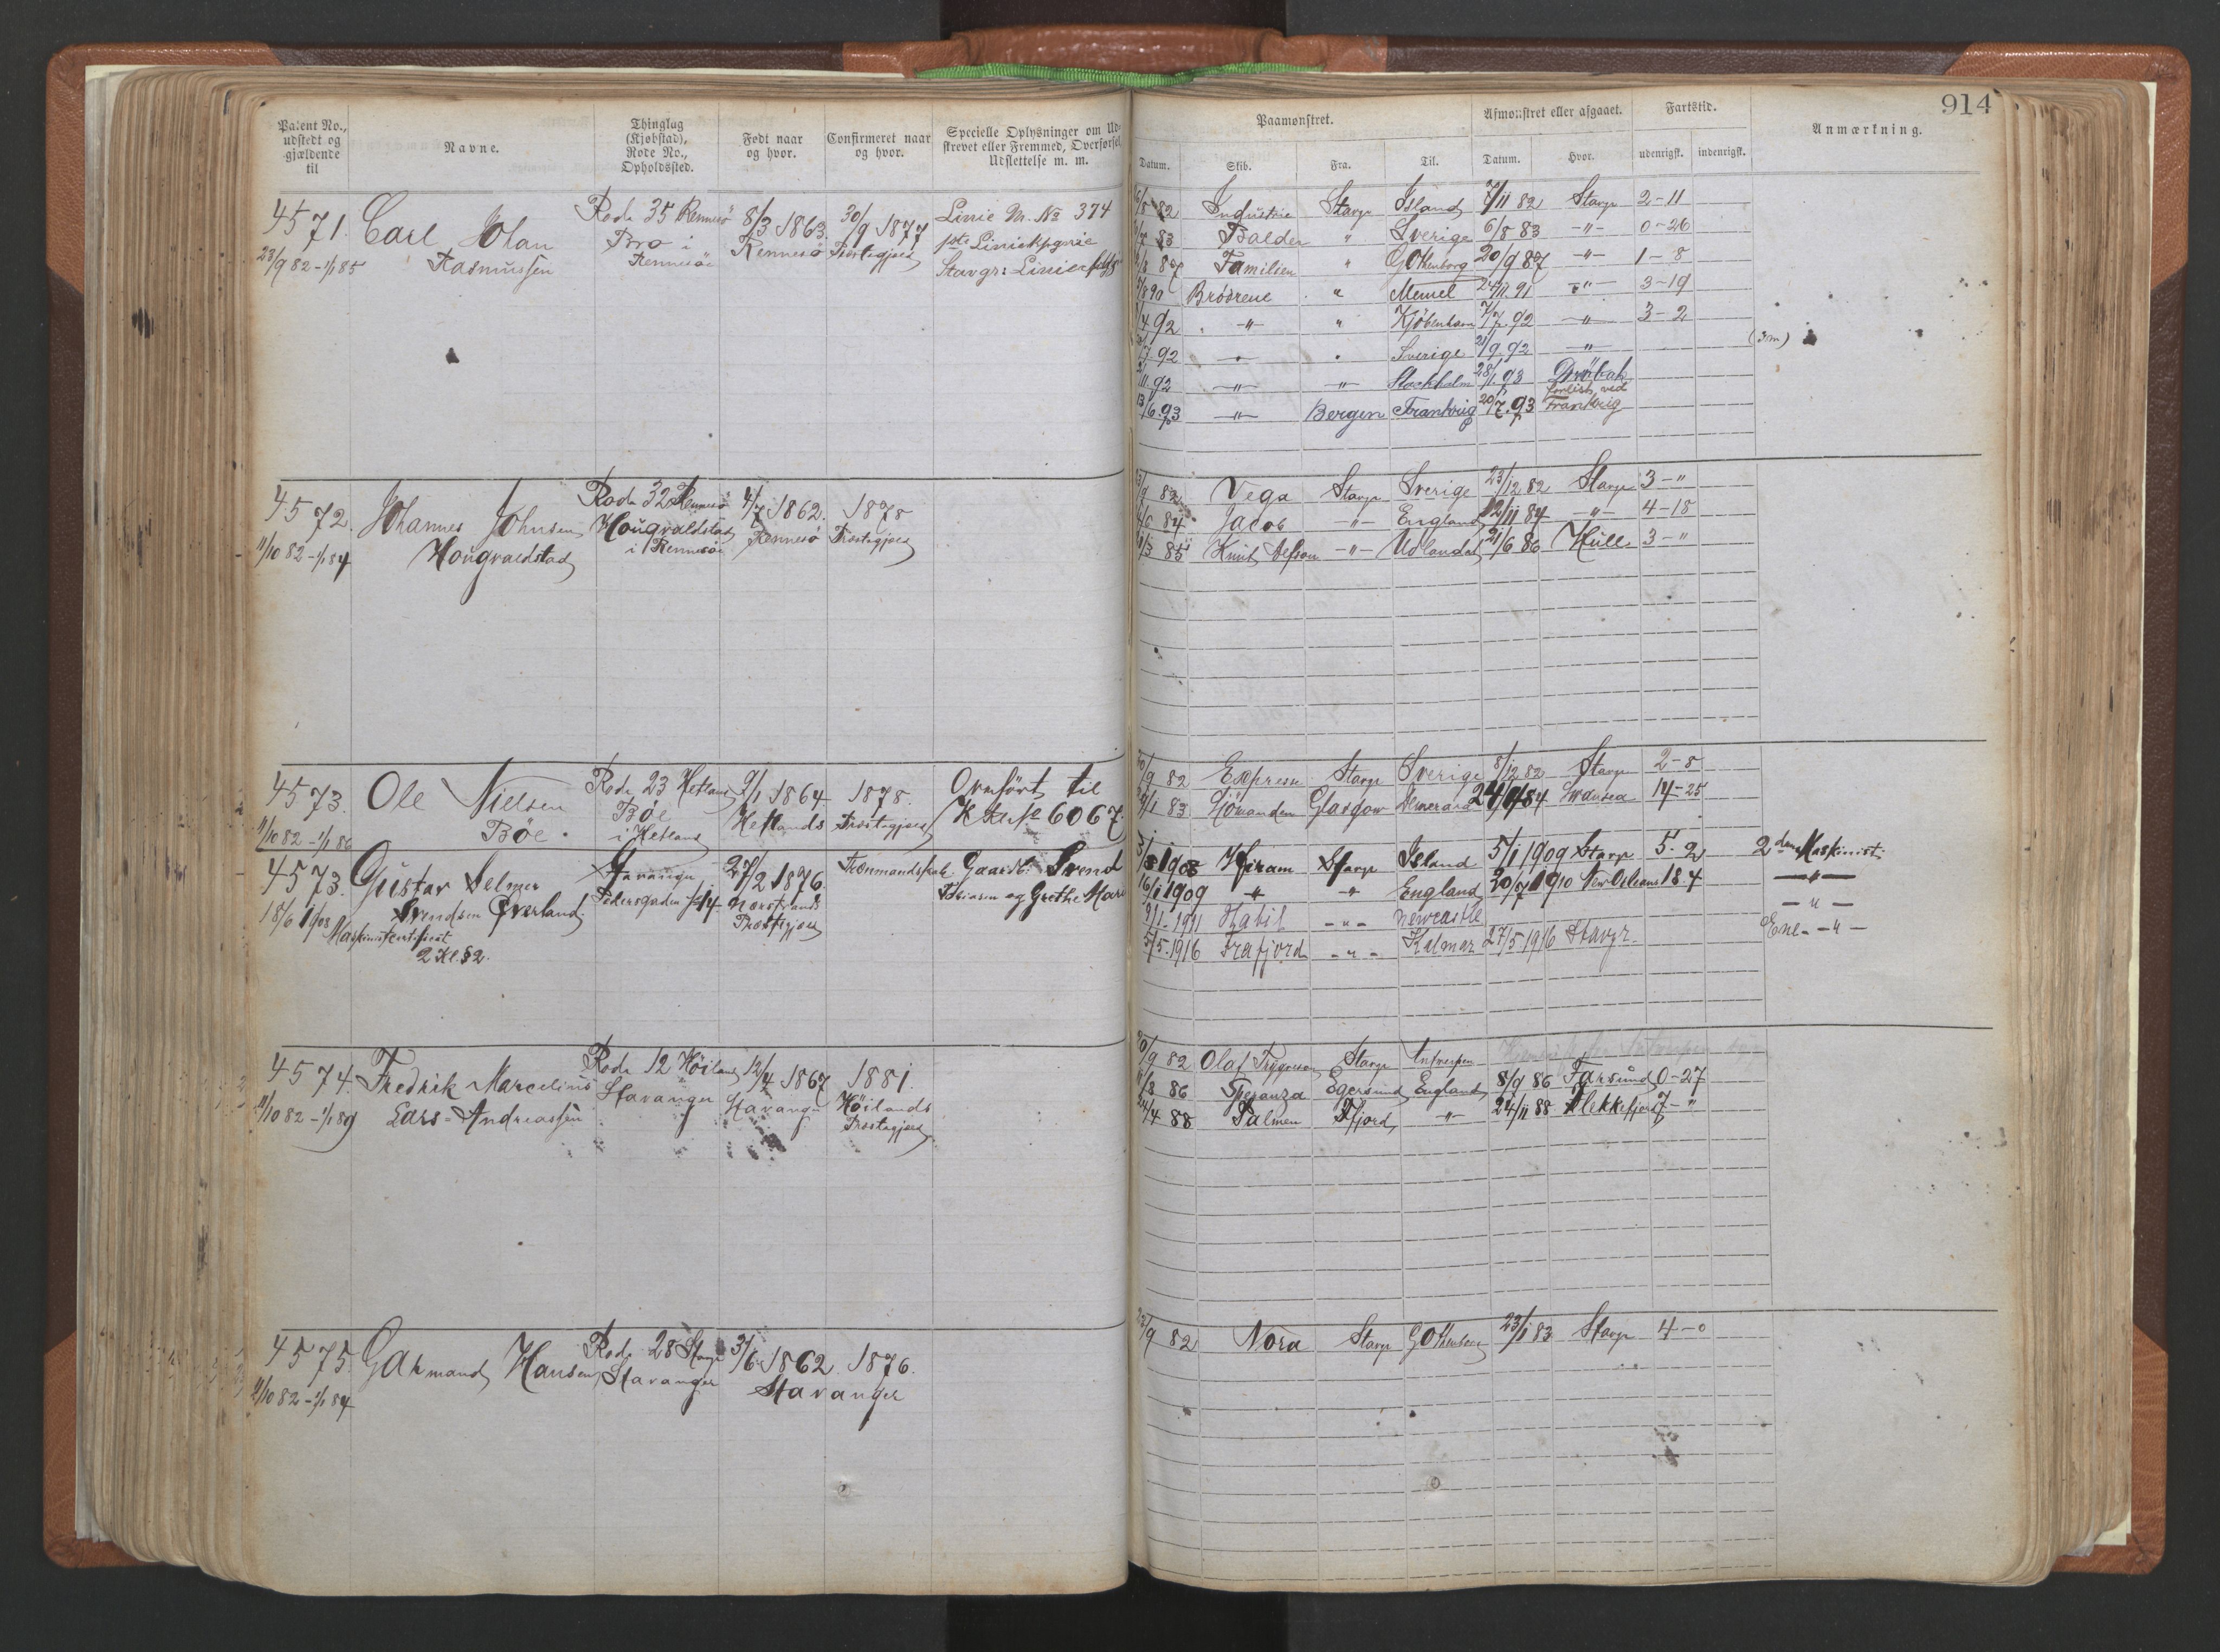 914
Patent No., udstedt og gjældende til
Navne.
Thinglag (Kjøbstad), Rode No., Opholdssted.
Født naar og hvor.
Confirmeret naar og hvor.
Specielle Oplysninger om Udskrevet eller Fremmed, Overførsel, Udslettelse m. m.
Paamønstret.
Afmønstret eller afgaaet.
Fartstid.
Anmærkning.
Datum. Skib. Fra. Til. Datum. Hvor. udenrigsk. indenrigsk.
4571. Carl Johan Rasmussen
23/9 82 - 1/1 85
Rode 35 Rennesö
Bro i
Rennesöe
8/3 1863.
Rennesö
30/9 1877
Præstegjæld
Linie M. No 374
Stavgr:
82 Industrie Stavgr Island 7/11 82 Stavgr 2-11
83 Balder " Sverige 6/8 83 -"- 0-26
87 Familien " Gothenborg 20/9 87 -"- 1-8
90 Brödrene " Memel 91 -"- 3-19
92 -"- " Kjöbenhavn 7/7 92 -"- 3-2
7.92 Sverige 21/9.92 -"-
11.92 -"- -"- Stockholm 28/1.93 Dröbak
13/6.93 -"- Bergen Frankrig 20/7.93 forlist ved Frankrig
4572. Johannes Johnsen
Hougvaldstad
11/10 82 - 1/1 84
Rode 32 Rennesö
Hougvaldstad
i Rennesöe
4/7 1862.
Rennesö
1878
Præstegjæld
82 Vega Stavgr Sverige 23/12 82 Stavgr 3-"
84 Jacob -"- England 12/11 84 -"- 4-18
85 Knud -"- Udlandet 21/6 86 Hull 3-"
4573. Ole Nielsen
Böe.
11/10 82 - 1/1 86
Rode 23 Hetland
Böe
i Hetland
2/1 1864
Hetlands
1878.
Præstegjæld
Overfört til
No 6067.
82 Express Stavgr Sverige 8/12 82 Stavgr 2-8
83 Sömanden Glasgow 84 Swansea 14-25
4573. Gustav Selmer
Svendsen Qverland.
18/6 1908 Maskinistcertificat
2 Kl. § 2.
Stavanger
Pedersgaden 14
27/2 1876.
Nærstrands
Præstegjæld
Svend
Tobiasen og Grethe Marie
1908 Hiram Stavgr Island 5/1 1909 Stavgr 5.2 2den Maskinist
16/1 1909 " " England 20/7 1910 New Orleans 18.4 -"-
1911 Habil -"- Newcastle -"-
5/5.1916 Frafjord -"- Kalmar 27/5 1916 Stavgr. Ene- -"-
4574. Fredrik Marcelius
Lars Andreassen
11/10 82 - 1/1 89
Rode 12 Höiland
Stavanger
12/4 1867
Stavanger
1881.
Höilands
Præstegjæld
82 Olaf Trygveson Stavgr Antverpen
86 Speranza Egersund England 8/9 86 Farsund 0-27
88 Palmen Ffjord -"- 24/11 88 Flekkefjord 7-"
4575. Gahrmand Hansen
11/10 82 - 1/1 84
Rode 28 Stavgr
Stavanger
3/6 1862
1876.
Stavanger
82 Nora Stavgr Gothenborg 23/1 83 Stavgr 4-0